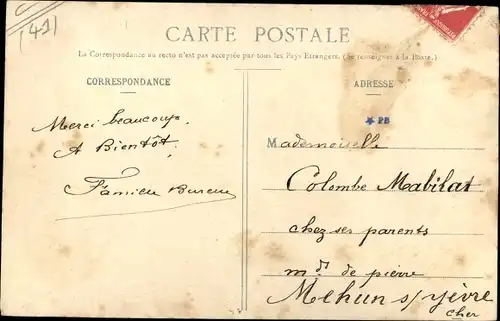 (41)
CARTE POSTALE
La Correspondance au recto n'est pas acceptée par tous les Pays Etrangers. (Se renseigner à la Poste.)
CORRESPONDANCE
Merci beaucoup.
A Bientôt.
ADRESSE
* PB
Mademoiselle
Colombe Mabilat
chez ses parents
md de pierre
Mehun s/yèvre
Cher